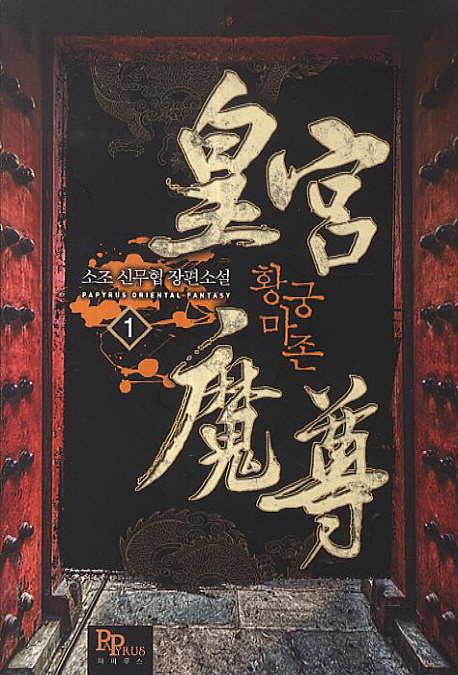 皇宮
황궁
마존
소조 신무협 장편소설
PAPYRUS ORIENTAL FANTASY
1
魔尊
PAPYRUS
파피루스